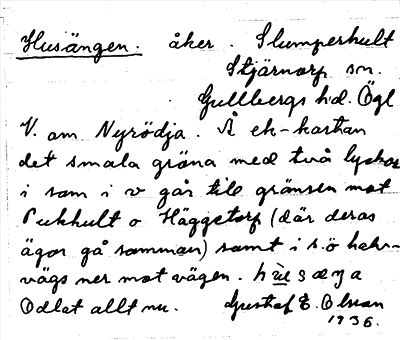 Husängen. åker. Slumperhult
Stjärnorp sn.
Gullbergs hd. Ögl
V. om Nyrödja. Å ek-kartan
det smala gröna med två lyckor
i som i v går till gränsen mot
Pukhult o Häggetorp (där deras
ägor gå samman) samt i s.ö halv-
vägs ner mot vägen. husæŋa
Odlat allt nu. Gustaf E. Olsson
1936.